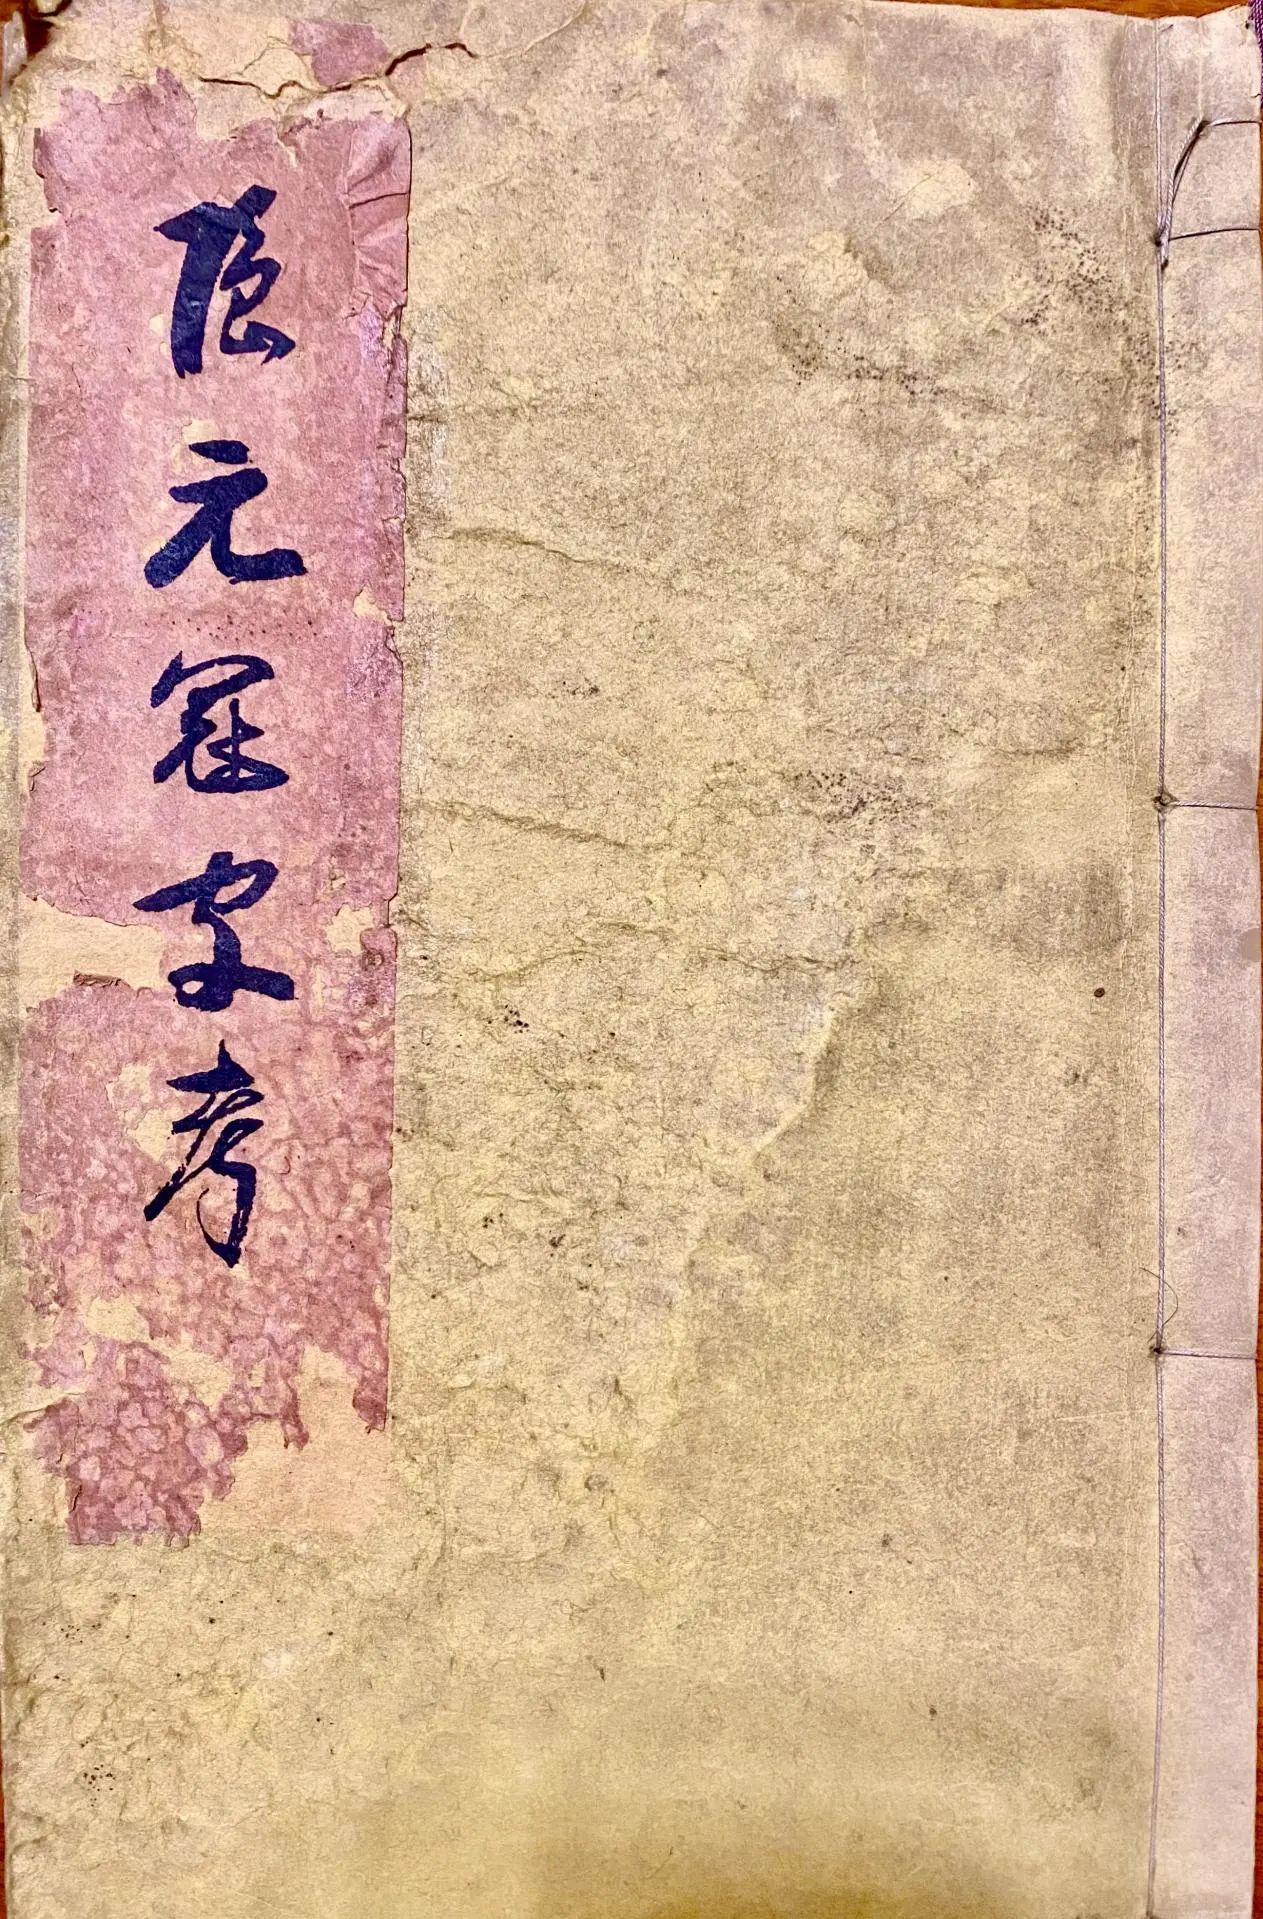 隠元冠字考